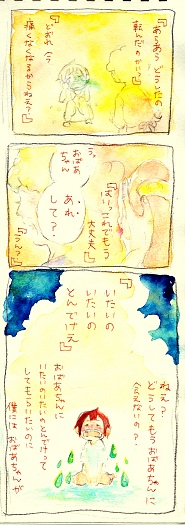 『あらあらどうしたの
転んだのかい？』
『どおれ
痛くなくなるからねえ？
うっ
おばあ
ちゃん
あ、あれ、
して？
『はいっこれでもう
大丈夫』
『うん？
『いたいの
いたいの
とんでけえ』
ねえ？
どうしてもうおばあちゃんに
会えないの？
おばあちゃんに
いたいのいたいのとんでけって
してもらいたいのに
僕には おばあちゃんが